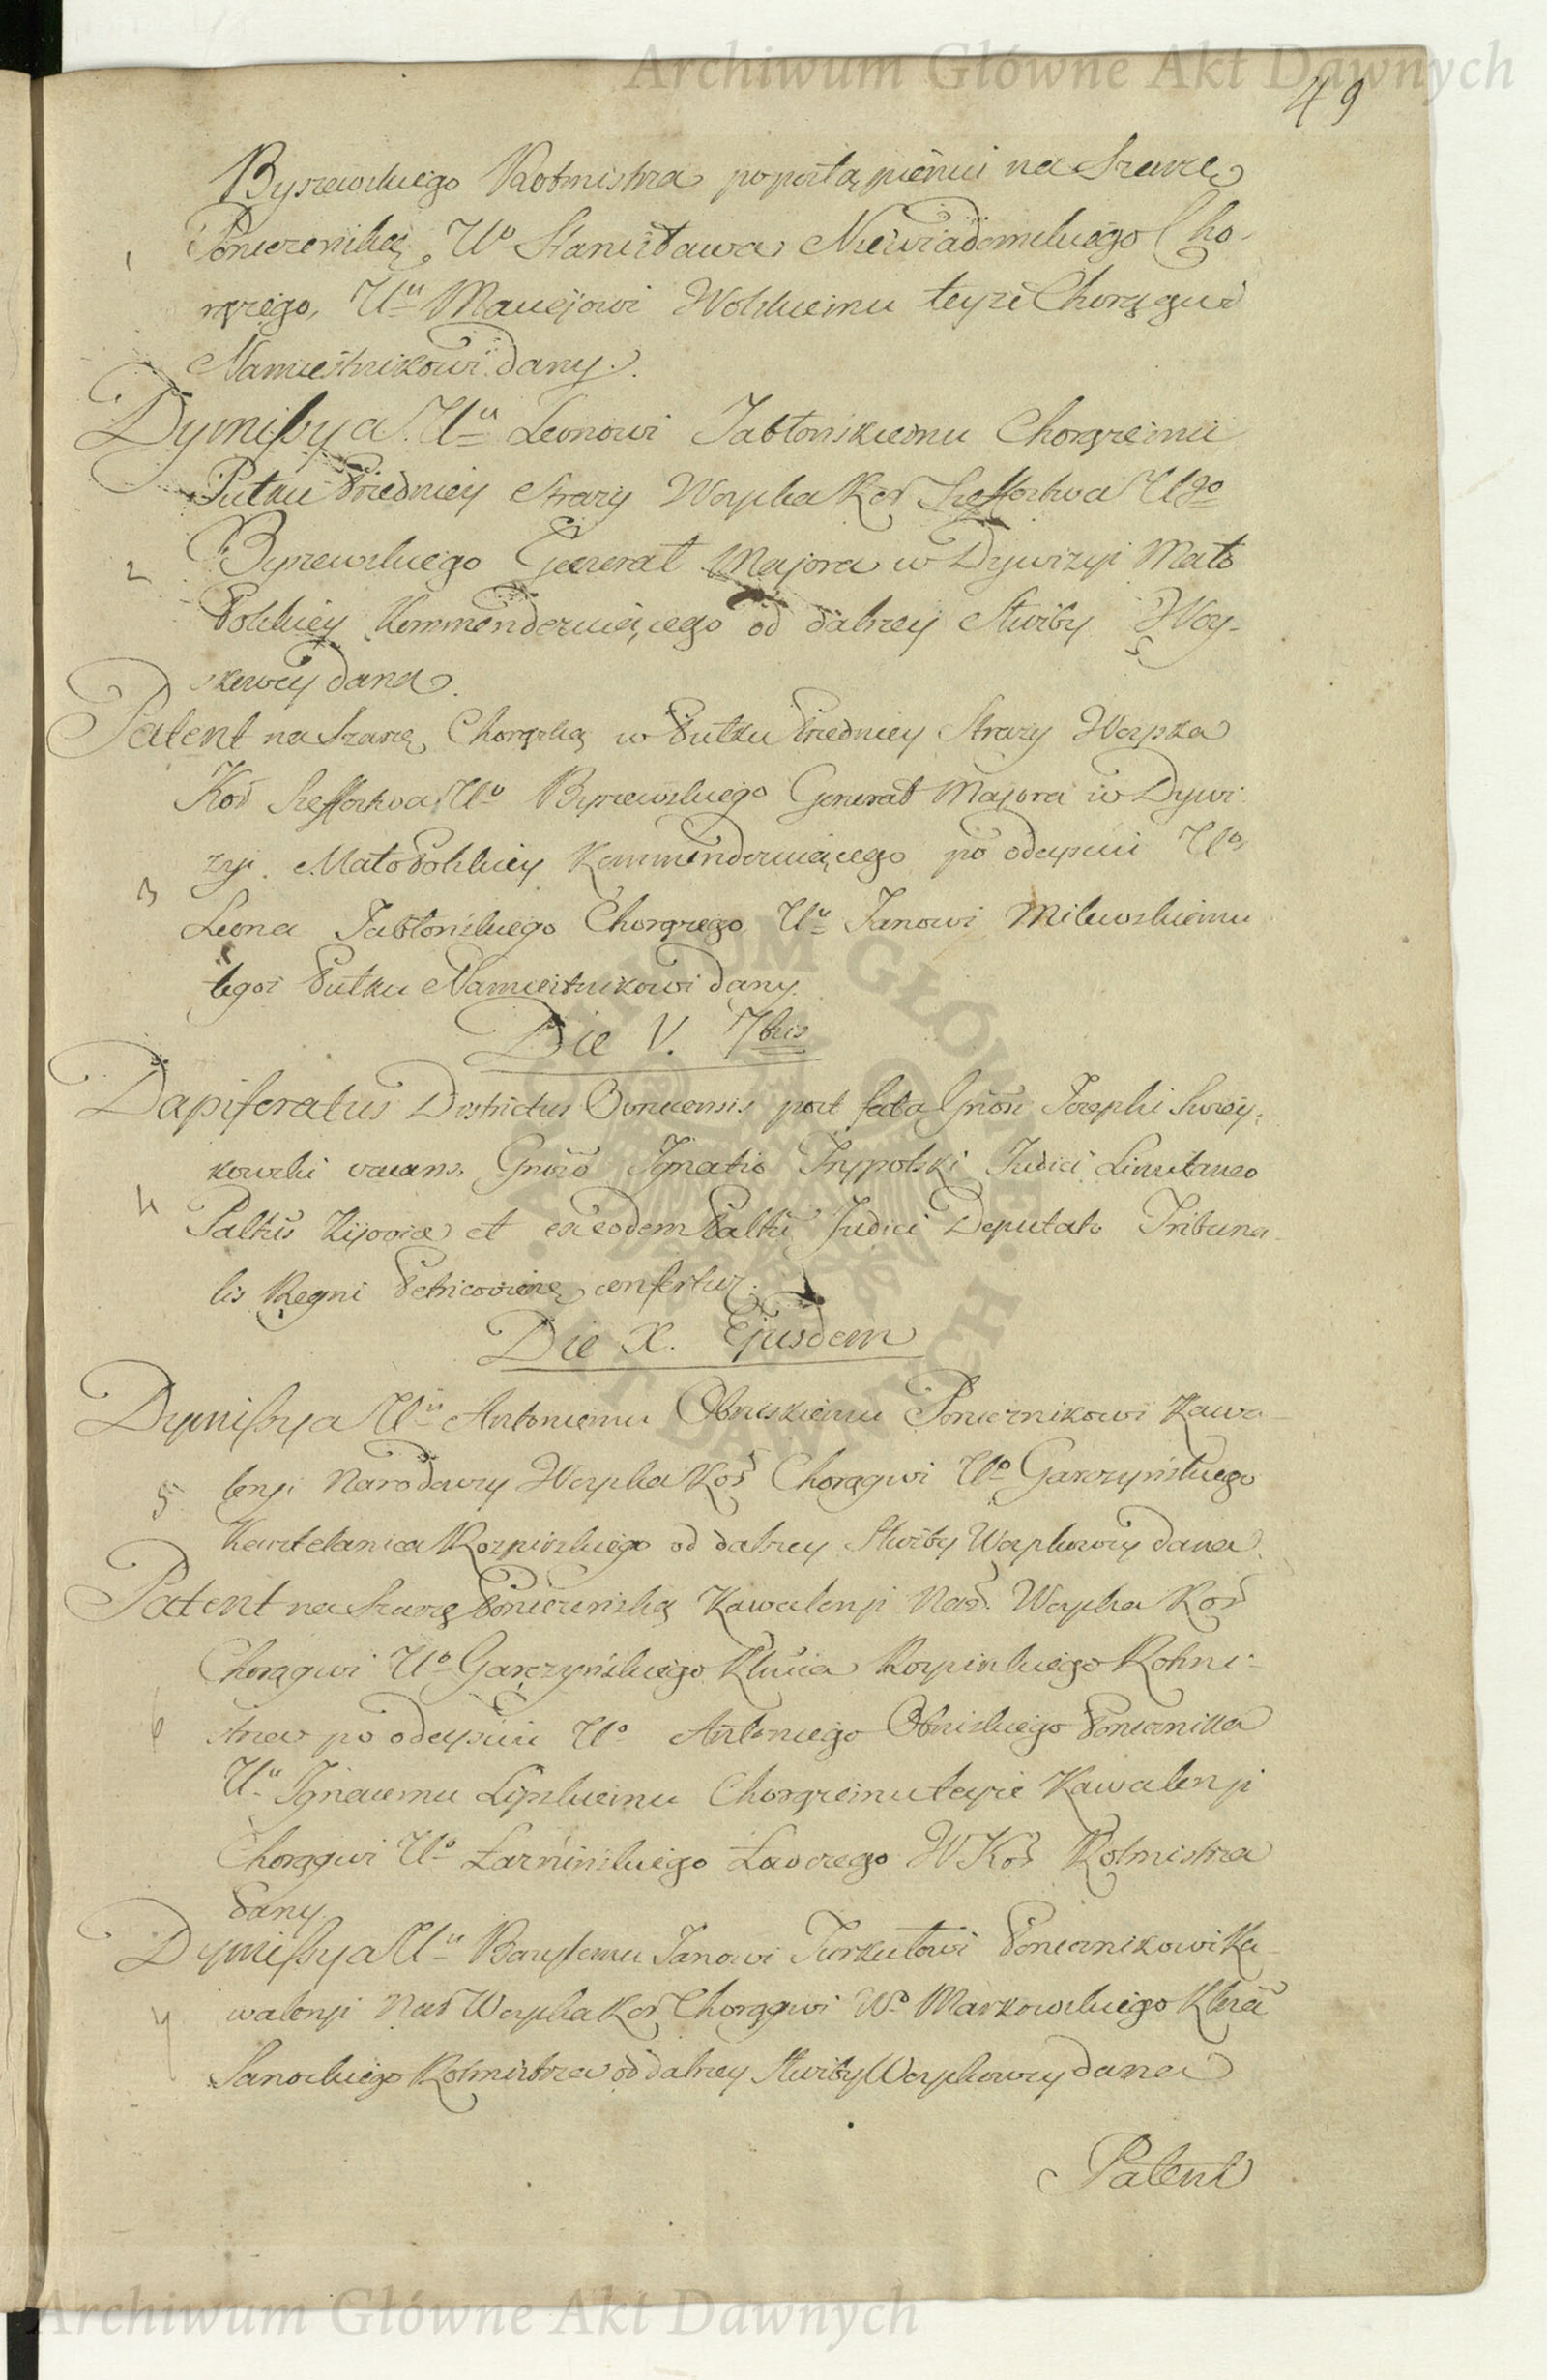 Archiwum Główne Akt Dawnych
49
Byszewskiego Rotmistrza po postąpieniu na Szarżę
1 Poruczniką Uo Stanisława Niewiadomskiego Cho-
rążego, Uu Maciejowi Wolskiemu teyże Chorągwi
Namiestnikowi dany.
Dymissya Uu Leonowi Jabłońskiemu Chorążemu
Pułku Przedniey Straży Woyska Kor Szeffostwa Ugo
2 Byszewskiego Generał Majora w Dywizyi Mało
Polskiey Kommenderuiącego od dalszey Służby Woy-
skowey dana.
Patent na Szarżę Chorążską w Pułku Przedniey Straży Woyska
Kor Szeffostwa Uo Byszewskiego Generał Majora w Dywi
zyi MałoPolskiey Kommenderuiącego po odeyściu Uo
3 Leona Jabłońskiego Chorążego Uu Janowi Milewskiemu
tegoż Pułku Namiestnikowi dany.
Die V. 7bris
Dapiferatus Districtus Ovrucensis post fata Gnosi Josephi Swiey-
kowski vacans. Gnoso Ignatio Trypolski Judici Limitaneo
4 Paltus Kijoviæ et ex eodem Paltu Judici Deputato Tribuna-
lis Regni Petricoviensi confertur.
Die X. Ejusdem
Dymissya Uu Antoniemu Obniskiemu Porucznikowi Kawa-
5 leryi Narodowey Woyska Kor Chorągwi Uo Garczyńskiego
Kasztelanica Rozpirskiego od dalszey Służby Woyskowey dana.
Patent na Szarżę Poruczniską Kawaleryi Nar. Woyska Kor
Chorągwi Uo Garczyńskiego Kltnica Rozpirskiego Rotmi-
6 strza po odeyściu Uo Antoniego Obniskiego Porucznika
Uu Ignacemu Lipskiemu Chorążemu teyże Kawaleryi
Chorągwi Uo Łowczego WKor Rotmistrza
dany.
Dymissya Uu Janowi Turkułowi Porucznikowi Ka-
7 waleryi Nar Woyska Kor Chorągwi Wo Markowskiego
Sanockiego Rotmistrza od dalszey Służby Woyskowey dana
Patent
Archiwum Główne Akt Dawnych